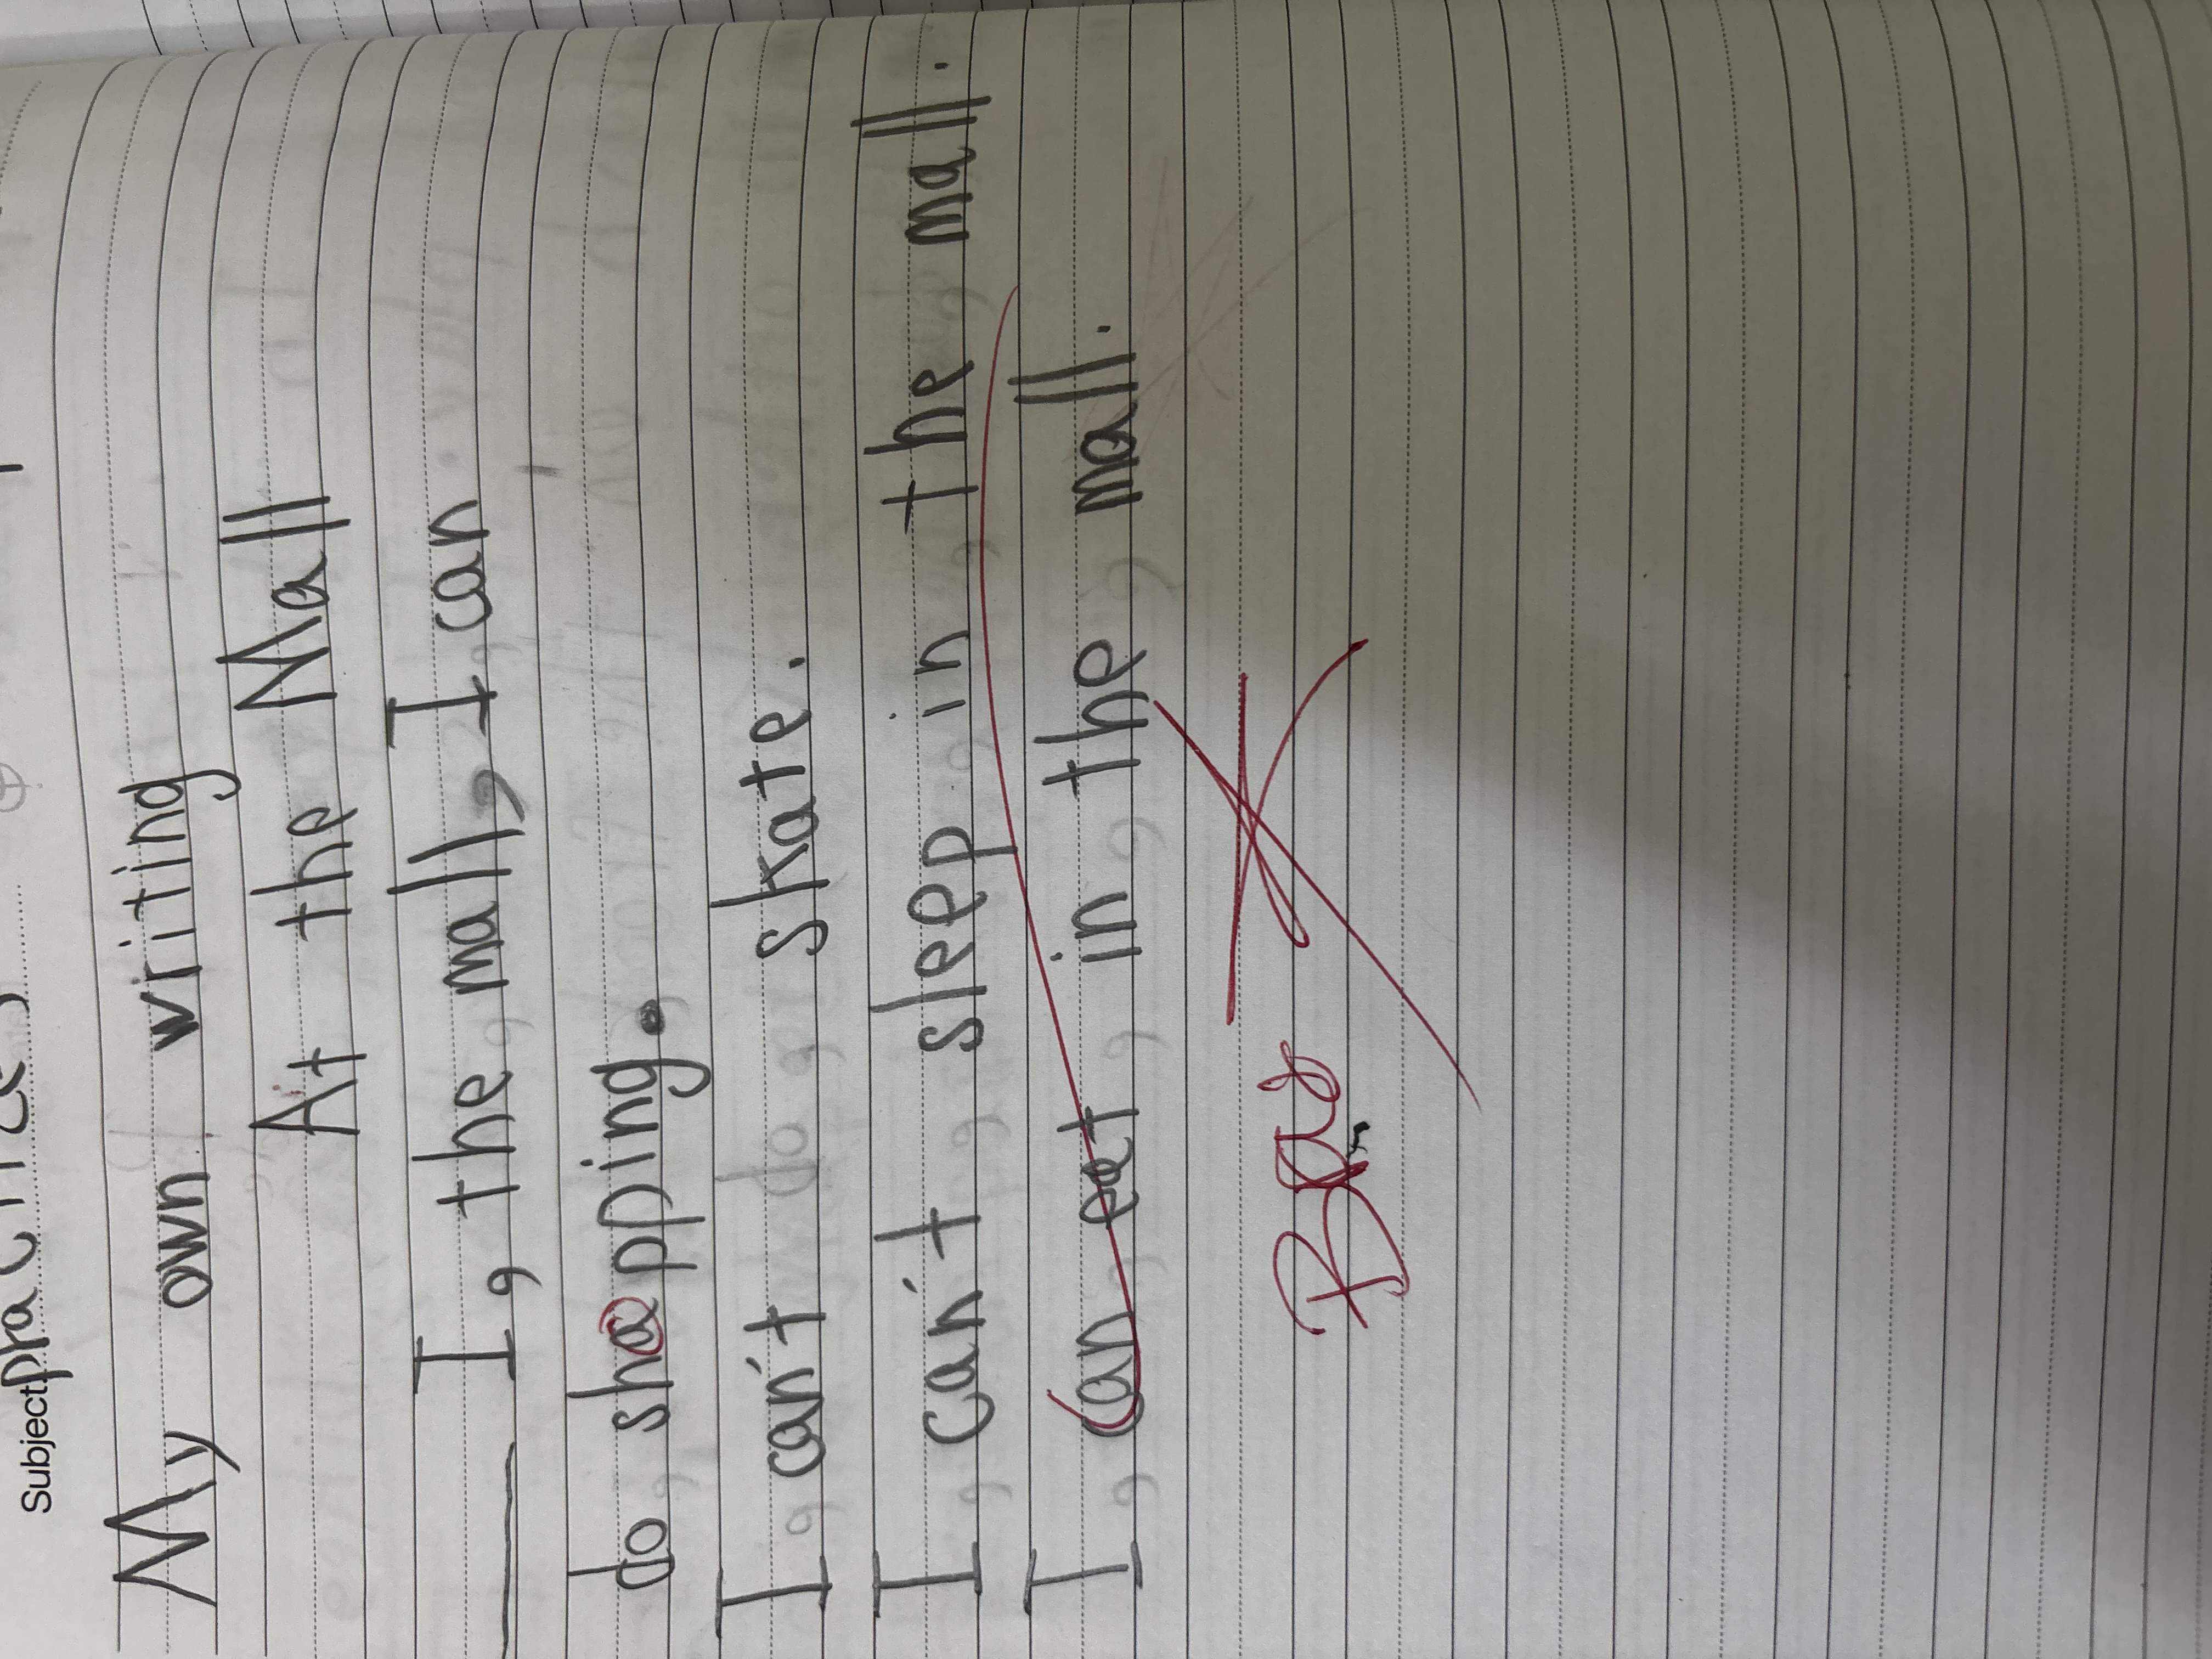 Subject practice
My own writing
At the Mall
I, the mall, I can
do shapping.
I can't skate.
I can't sleep in the mall.
I can eat in the mall.